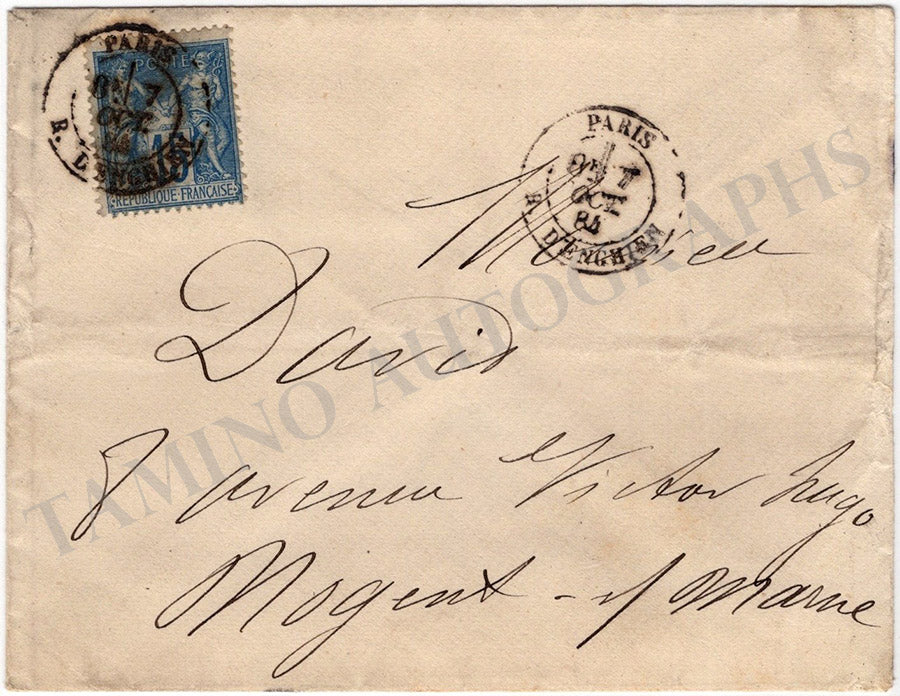 PARIS
7
OCT
R. D'ENGHIEN
POSTES
15
REPUBLIQUE FRANÇAISE
PARIS
7
OCT
84
R. D'ENGHIEN
Monsieu
David
8 avenue Victor hugo
Nogent - s/ Marne
TAMINO AUTOGRAPHS